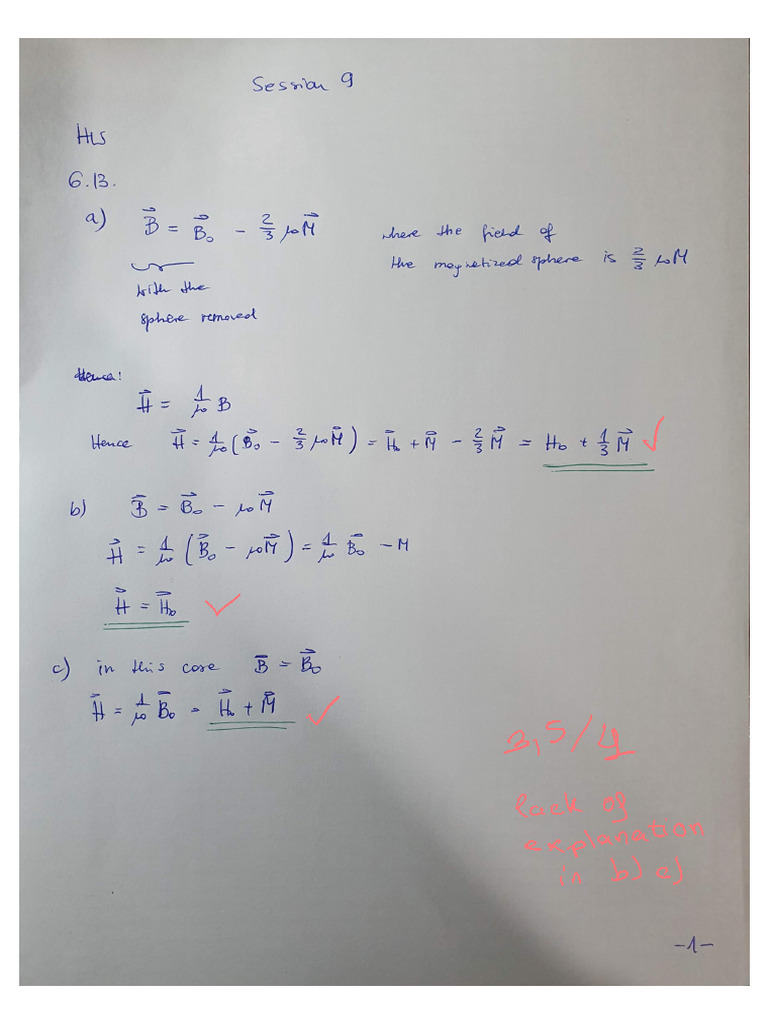 Session 9
HW
6.13.
a) B⃗ = B⃗₀ - 2/3 μ₀M⃗ where the field of
the magnetized sphere is 2/3 μ₀M
with the
sphere removed
Hence:
H⃗ = 1/μ₀ B
Hence H⃗ = 1/μ₀ (B⃗₀ - 2/3 μ₀M⃗) = H⃗₀ + M⃗ - 2/3 M⃗ = H₀ + 1/3 M⃗ ✓
b) B⃗ = B⃗₀ - μ₀M⃗
H⃗ = 1/μ₀ (B⃗₀ - μ₀M⃗) = 1/μ₀ B⃗₀ - M
H⃗ = H⃗₀ ✓
c) in this case B⃗ = B⃗₀
H⃗ = 1/μ₀ B⃗₀ = H⃗₀ + M⃗ ✓
3,5/4
lack of
explanation
in b) c)
-1-